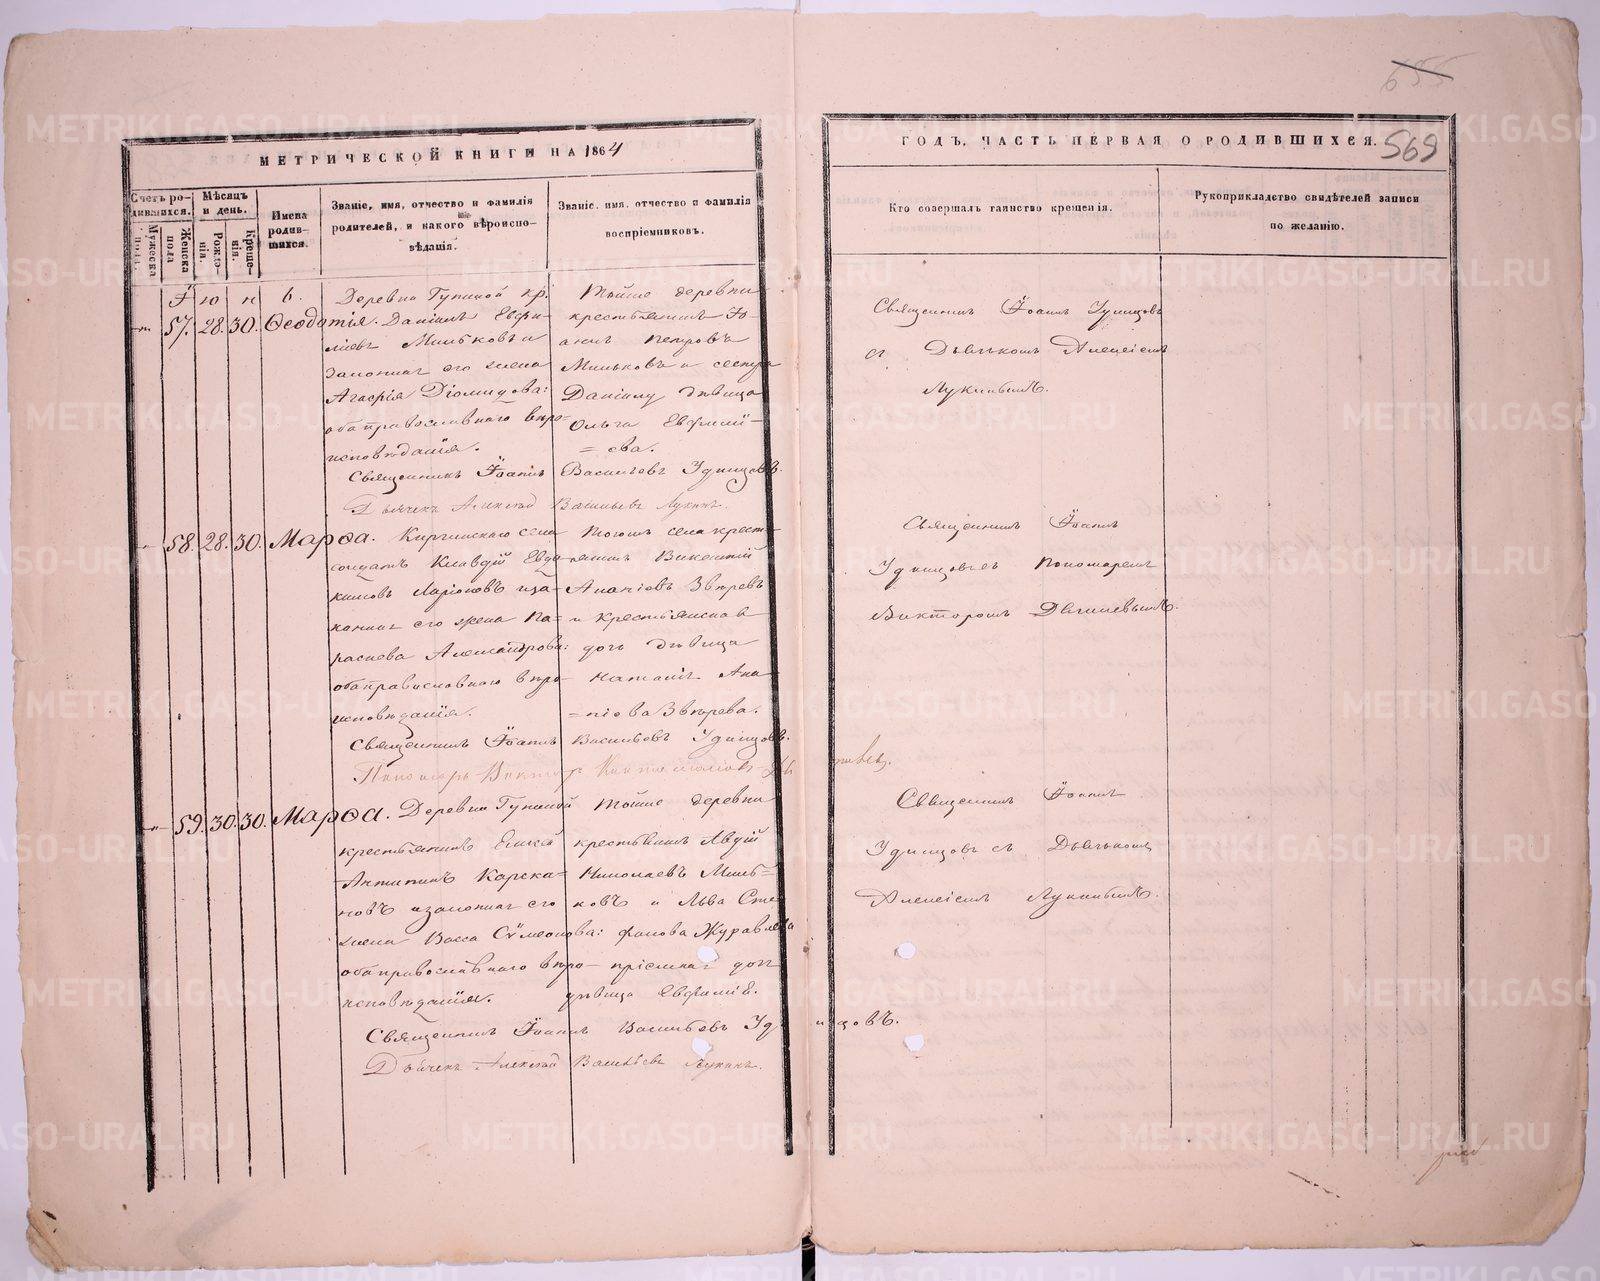 МЕТРИЧЕСКОЙ КНИГИ НА 1864
ГОДЪ, ЧАСТЬ ПЕРВАЯ О РОДИВШИХСЯ.
569
655
Счетъ родившихся.
Мужеска пола.
Женска пола
Мѣсяцъ и день.
Рожденія.
Крещенія.
Имена родившихся.
Званіе, имя, отчество и фамилія
родителей, и какого вѣроиспо-
вѣданія.
Званіе, имя, отчество и фамилія
воспріемниковъ.
Кто совершалъ таинство крещенія.
Рукоприкладство свидѣтелей записи
по желанію.
І ю н ь.
57. 28. 30. Ѳеодотія.
Деревни Гуниной кр.
Даніилъ Евфи-
міевъ Мильковъ и
законная его жена
Агафія Діомидова:
оба православнаго вѣро-
исповѣданія.
Тойже деревни
крестьянинъ Іо-
аннъ Петровъ
Мильковъ и сестра
Даніилу дѣвица
Ольга Евфимі-
=ева.
Священникъ Іоаннъ Васильевъ Удинцовъ.
Дьячекъ Алексѣй Васильевъ Лукинъ.
Священникъ Іоаннъ Удинцовъ
съ Дьячкомъ Алексіемъ
Лукинымъ.
58. 28. 30. Марѳа.
Киргинскаго села
солдатъ Клавдій Евдо-
кимовъ Ларіоновъ и за-
конная его жена Па-
раскева Александрова:
оба православнаго вѣро-
исповѣданія.
Тогожъ села крест-
янинъ Викентій
Ананіевъ Звѣревъ
и крестьянская
дочь дѣвица
Наталія Ана-
=ніева Звѣрева.
Священникъ Іоаннъ Васильевъ Удинцовъ.
Пономарь Викторъ
Священникъ Іоаннъ
Удинцовъ съ Пономаремъ
Викторомъ Дягилевымъ.
59. 30. 30. Марѳа.
Деревни Гуниной
крестьянинъ Елисей
Антипинъ Карска-
новъ и законная его
жена Васса Сѵмеонова:
оба православнаго вѣро-
исповѣданія.
Тойже деревни
крестьянинъ Авдій
Николаевъ Миль-
ковъ и Льва Сте-
фанова Журавлева
пріемная дочь
дѣвица Евфимія.
Священникъ Іоаннъ Васильевъ Удинцовъ.
Дьячекъ Алексѣй Васильевъ Лукинъ.
Священникъ Іоаннъ
Удинцовъ съ Дьячкомъ
Алексіемъ Лукинымъ.
METRIKI.GASO-URAL.RU